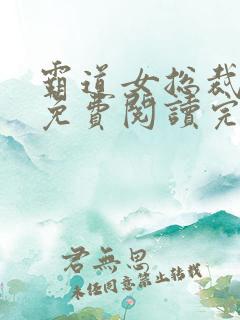 霸道女总裁
免費閱讀完
君無思
未经同意禁止转载